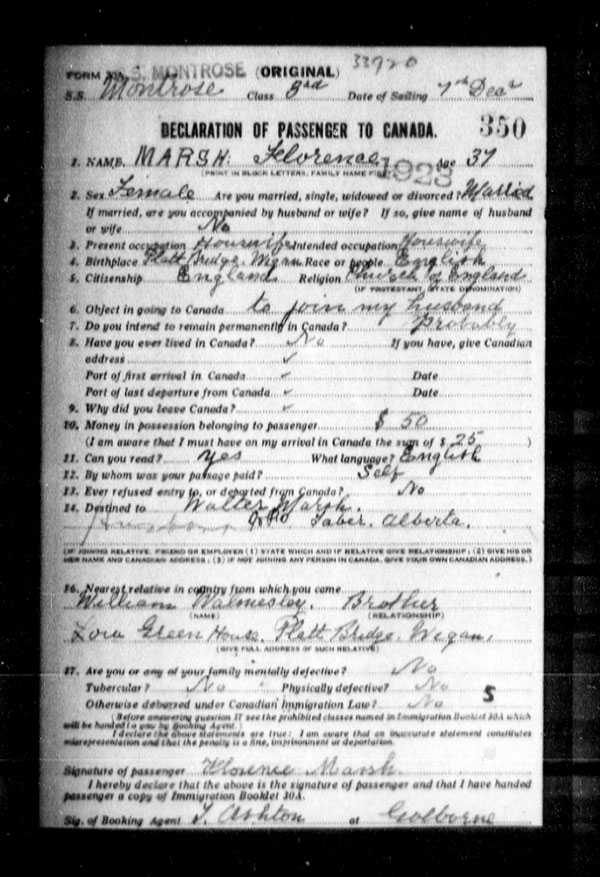 33920
FORM 30A. S.S. MONTROSE (ORIGINAL)
S.S. Montrose Class 3rd Date of Sailing 7th Decr
DECLARATION OF PASSENGER TO CANADA. 350
1. NAME. MARSH: Florence Age 37
(PRINT IN BLOCK LETTERS, FAMILY NAME FIRST) 1923
2. Sex Female Are you married, single, widowed or divorced? Married
If married, are you accompanied by husband or wife? If so, give name of husband
or wife No
3. Present occupation Housewife Intended occupation Housewife
4. Birthplace Platt Bridge. Wigan Race or people English
5. Citizenship England Religion Church of England
(IF PROTESTANT, STATE DENOMINATION)
6. Object in going to Canada to join my husband
7. Do you intend to remain permanently in Canada? Probably
8. Have you ever lived in Canada? No If you have, give Canadian
address ✓
Port of first arrival in Canada ✓ Date
Port of last departure from Canada ✓ Date
9. Why did you leave Canada? ✓
10. Money in possession belonging to passenger $ 50
(I am aware that I must have on my arrival in Canada the sum of $ 25 )
11. Can you read? Yes What language? English
12. By whom was your passage paid? Self
13. Ever refused entry to, or deported from Canada? No
14. Destined to Walter Marsh.
Husband Taber. Alberta.
(IF JOINING RELATIVE, FRIEND OR EMPLOYER (1) STATE WHICH AND IF RELATIVE GIVE RELATIONSHIP; (2) GIVE HIS OR
HER NAME AND CANADIAN ADDRESS; (3) IF NOT JOINING ANY PERSON IN CANADA, GIVE YOUR OWN CANADIAN ADDRESS.)
16. Nearest relative in country from which you came
William Walmesley. Brother
(NAME) (RELATIONSHIP)
Low Green House. Platt Bridge. Wigan,
(GIVE FULL ADDRESS OF SUCH RELATIVE)
17. Are you or any of your family mentally defective? No
Tubercular? No Physically defective? No
Otherwise debarred under Canadian Immigration Law? No 5
(Before answering question 17 see the prohibited classes named in Immigration Booklet 30A which
will be handed to you by Booking Agent.)
I declare the above statements are true: I am aware that an inaccurate statement constitutes
misrepresentation and that the penalty is a fine, imprisonment or deportation.
Signature of passenger Florence Marsh.
I hereby declare that the above is the signature of passenger and that I have handed
passenger a copy of Immigration Booklet 30A.
Sig. of Booking Agent T. Ashton at Golborne